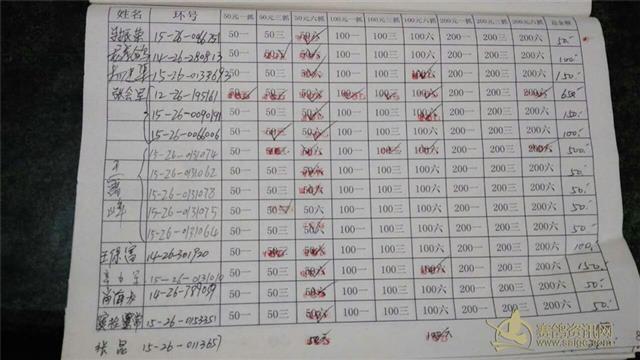 姓名 环号 50元一抓 50元三抓 50元六抓 100元一抓 100元三抓 100元六抓 200元一抓 200元三抓 200元六抓 总金额
50一 50三 50六 100一 100三 100六 200一 200三 200六 50.-
14-26-280813 50一 50三 50六 100一 100三 100六 200一 200三 200六 100.-
15-26-0133693 50一 50三 50六 100一 100三 100六 200一 200三 200六 150.-
张会军 12-26-195161 50一 50三 50六 100一 100三 100六 200一 200三 200六 650.-
15-26-0090191 50一 50三 50六 100一 100三 100六 200一 200三 200六 150.-
15-26-0066006 50一 50三 50六 100一 100三 100六 200一 200三 200六 100.-
15-26-0131074 50一 50三 50六 100一 100三 100六 200一 200三 200六 500.-
15-26-0131062 50一 50三 50六 100一 100三 100六 200一 200三 200六 50.-
15-26-0131078 50一 50三 50六 100一 100三 100六 200一 200三 200六 50.-
15-26-0131075 50一 50三 50六 100一 100三 100六 200一 200三 200六 50.-
15-26-0131064 50一 50三 50六 100一 100三 100六 200一 200三 200六 50.-
王保富 14-26-301920 50一 50三 50六 100一 100三 100六 200一 200三 200六 100.-
15-26-0131010 50一 50三 50六 100一 100三 100六 200一 200三 200六 150.-
14-26-789059 50一 50三 50六 100一 100三 100六 200一 200三 200六 50.-
15-26-0153351 50一 50三 50六 100一 100三 100六 200一 200三 200六 50.-
张昆 15-26-011365 50六 100六
赛鸽资讯网
www.saige.com